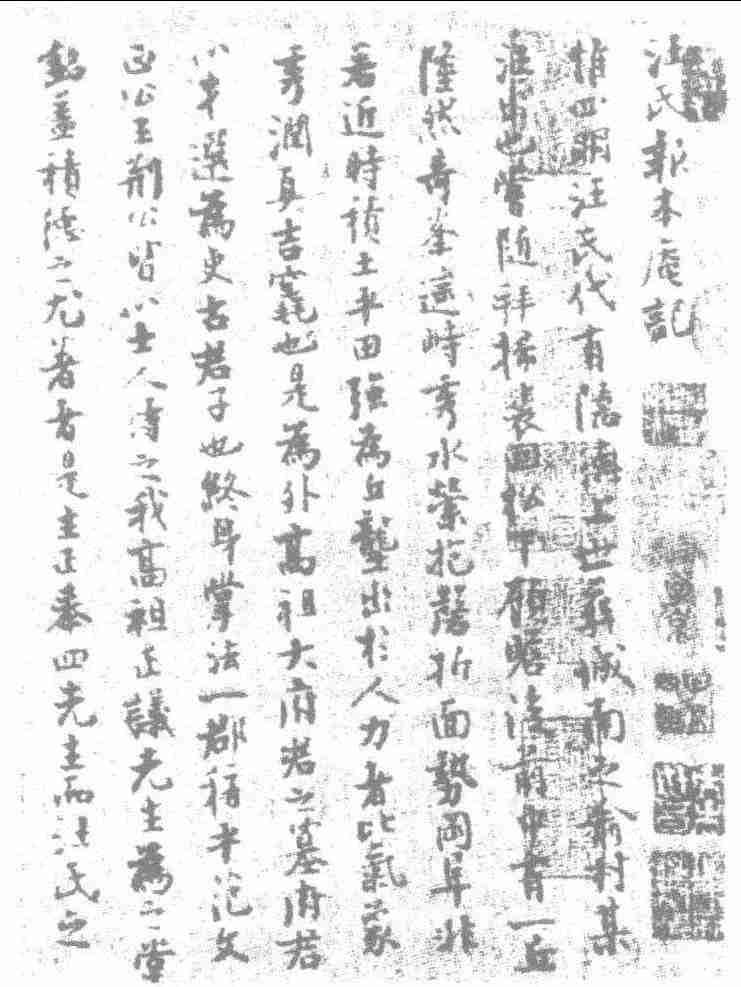 汪氏報本庵記
惟四明汪氏代有隱德上世葬城南之俞村某
汪出也嘗隨拜掃裴回松下顧瞻後前中有一丘
隆然奇峯遠峙秀水縈抱磬折面勢岡阜非
若近時積土平田強為丘壟出於人力者比氣象
秀潤真吉竁也是為外高祖大府君之墓府君
以才選為吏古君子也終身掌法一郡稱平范文
正公王荊公皆以士人待之我高祖正議先生為之堂
銘蓋積德之尤著者是生正奉四先生而汪氏之